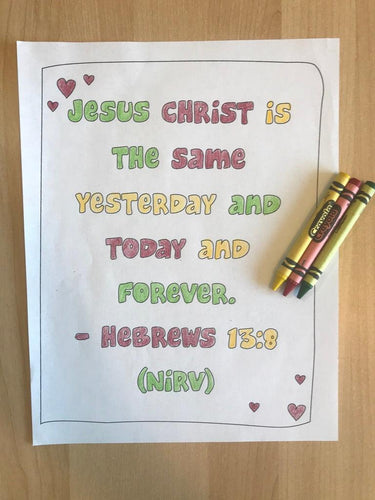 Jesus Christ is
the same
yesterday and
today and
forever.
- Hebrews 13:8
(NiRV)
Crayola